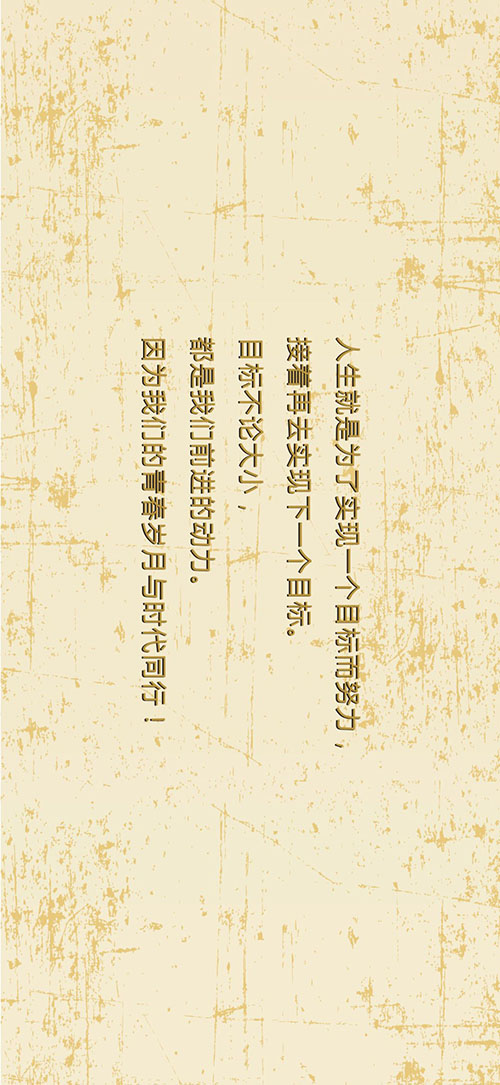 人生就是为了实现一个目标而努力，
接着再去实现下一个目标。
目标不论大小，
都是我们前进的动力。
因为我们的青春岁月与时代同行！